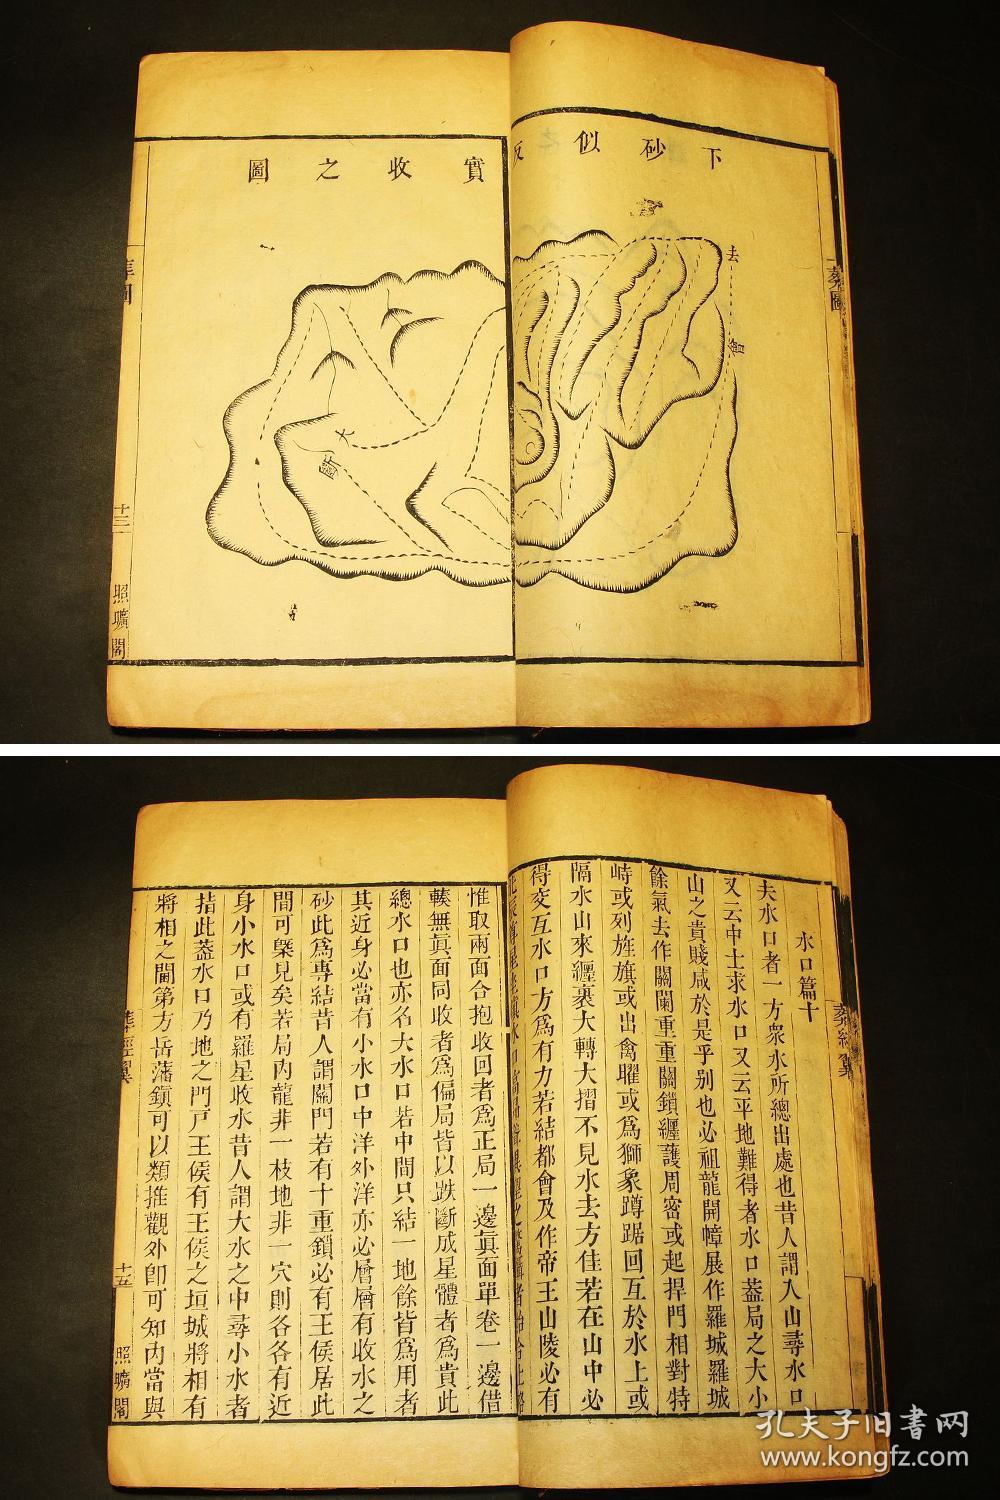 下砂似反
實收之圖
去
會
大
葬圖
葬圖
十三
照曠閣
水口篇十
夫水口者一方衆水所總出處也昔人謂入山尋水口
又云中士求水口又云平地難得者水口蓋局之大小
山之貴賤咸於是乎别也必祖龍開幛展作羅城羅城
餘氣去作關闌重重關鎖纏護周密或起捍門相對特
峙或列旌旗或出禽曜或爲獅象蹲踞回互於水上或
隔水山來纏裹大轉大摺不見水去方佳若在山中必
得交互水口方爲有力若結都會及作帝王山陵必有
惟取兩面合抱收回者爲正局一邊眞面單卷一邊借
輳無眞面同收者爲偏局皆以跌斷成星體者爲貴此
總水口也亦名大水口若中間只結一地餘皆爲用者
其近身必當有小水口中洋外洋亦必層層有收水之
砂此爲專結昔人謂關門若有十重鎖必有王侯居此
間可槩見矣若局内龍非一枝地非一穴則各各有近
身小水口或有羅星收水昔人謂大水之中尋小水者
指此蓋水口乃地之門戸王侯有王侯之垣城將相有
將相之閫第方岳藩鎭可以類推觀外卽可知内當與
葬經翼
葬經翼
十五
照曠閣
孔夫子旧書网
www.kongfz.com